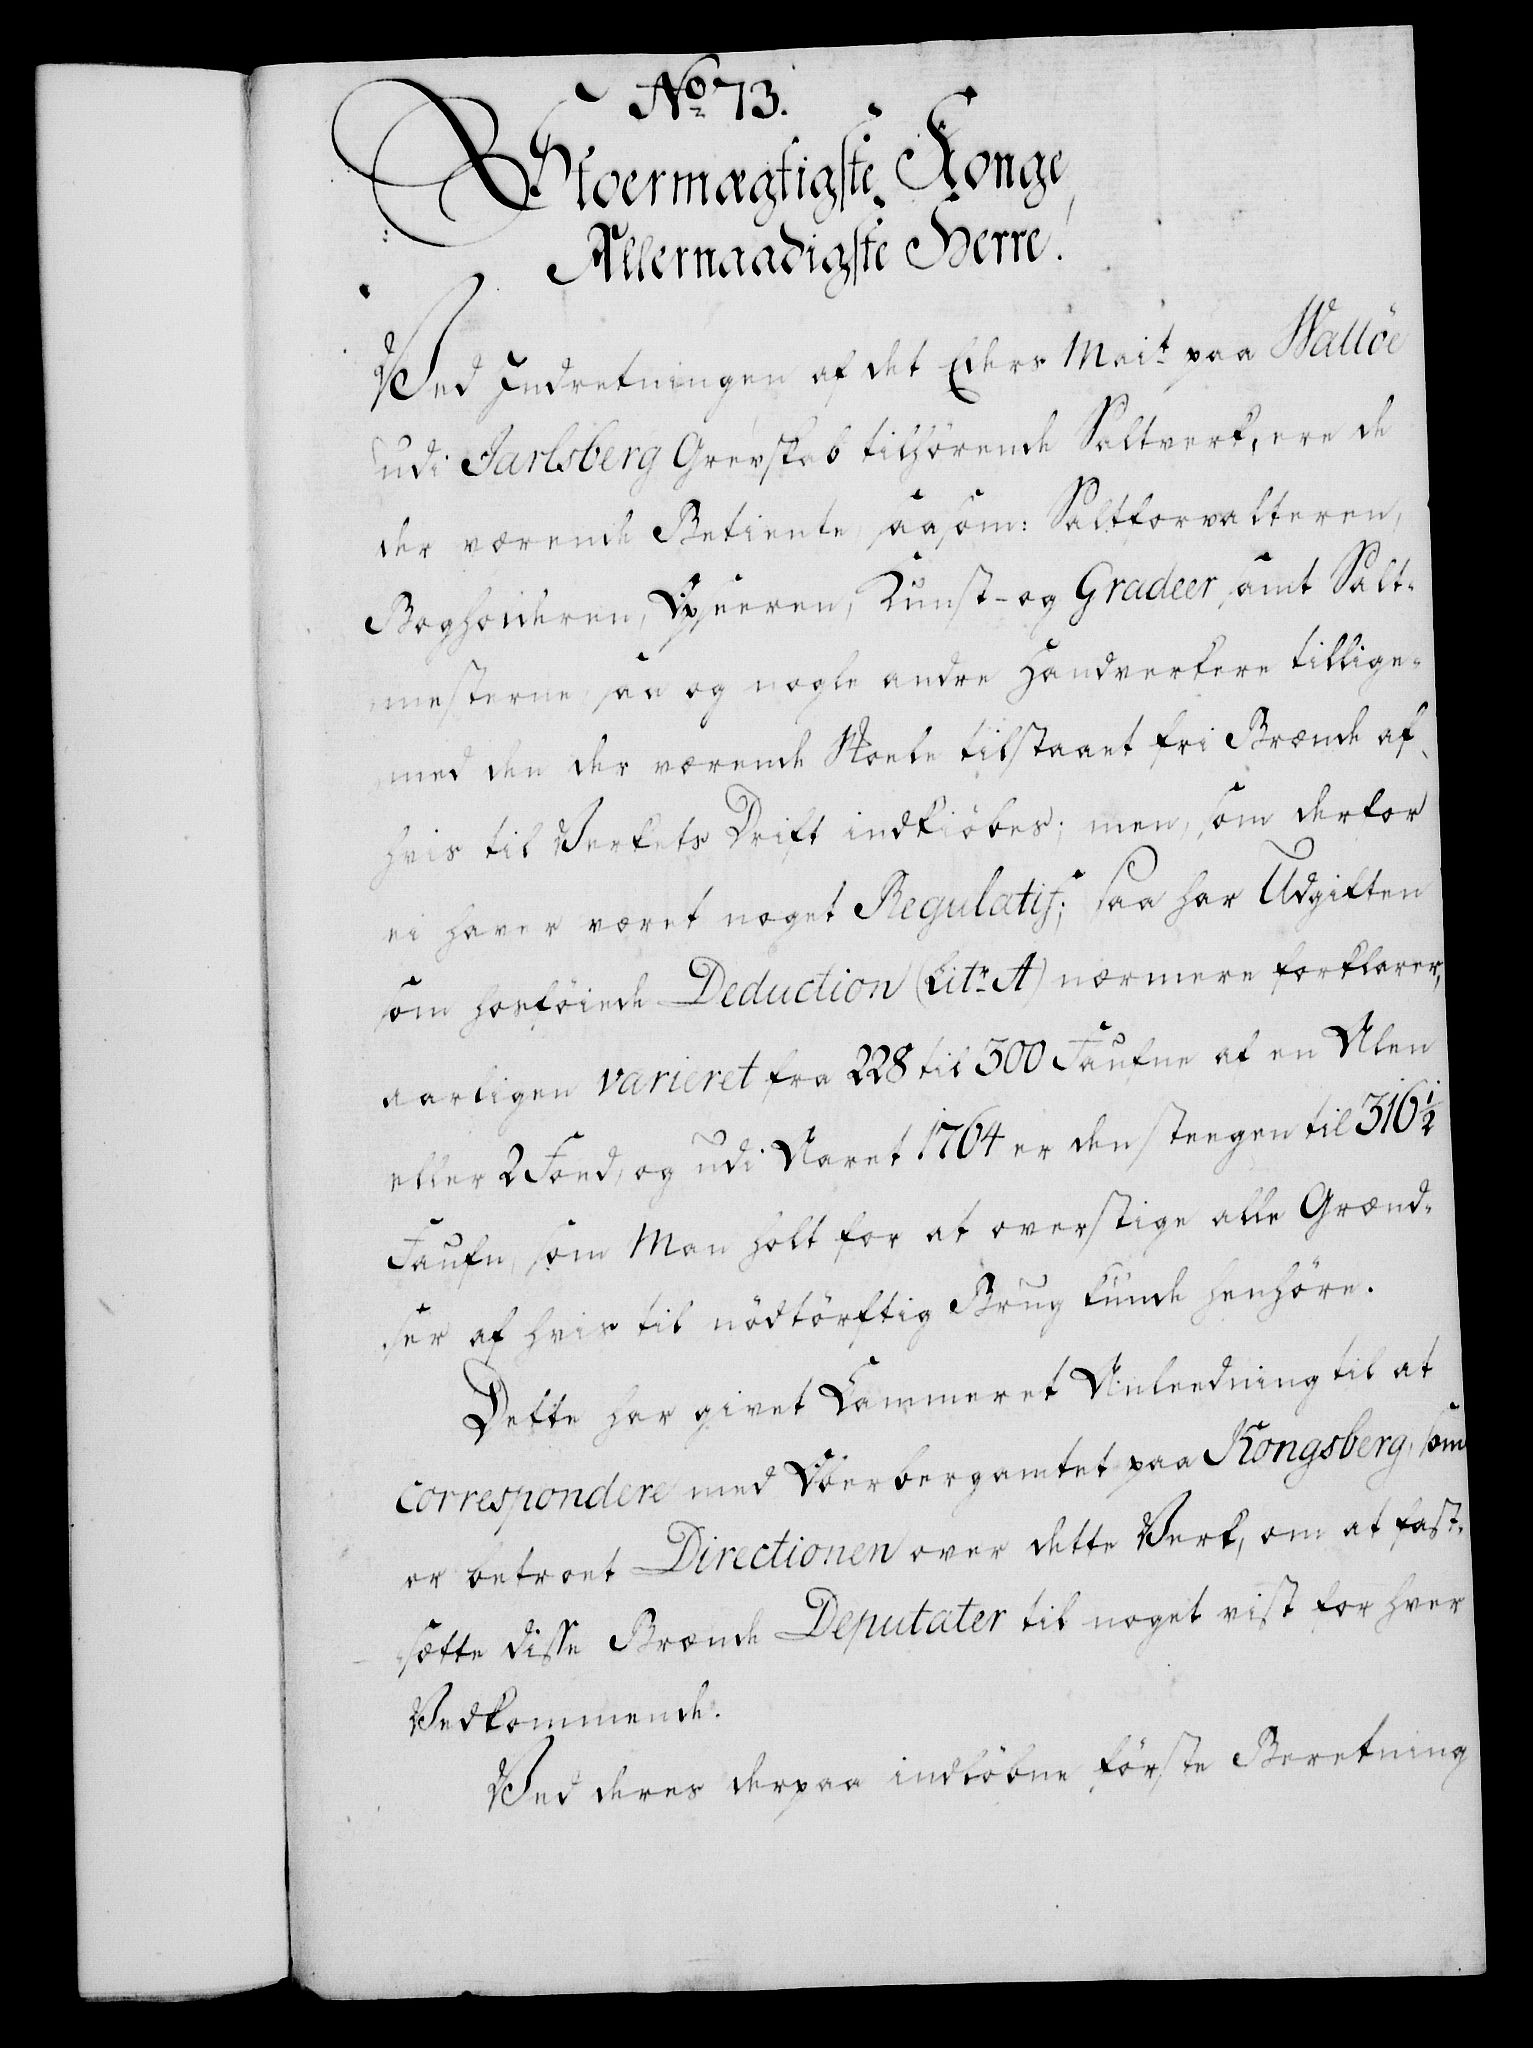 No 73.
Stoermægtigste Konge,
Allernaadigste Herre!
Ved Indretningen af det Eders Mait paa Walløe
udi Jarlsberg Grevskab tilhørende Saltverk, ere de
der værende Betiente, saasom: Saltforvalteren,
Bogholderen, Opseeren, Kunst- og Gradeer samt Salt-
mesterne, saa og nogle andre Handverkere tillige-
med den der værende Skole tilstaaet fri Brænde af
hvis til Verkets Drift indkiøbes; men, som derfor
ei haver været noget Regulatif; saa har Udgiften
som hosføiede Deduction (Litr. A) nærmere forklarer,
aarligen varieret fra 228 til 300 Faufne af en Alen
eller 2 Foed, og udi Aaret 1764 er den steegen til 316 1/2
Faufn, som Man holt for at overstige alle Grænd-
ser af hvis til nødtørftig Brug kunde henhøre.
Dette har givet Kammeret Anleedning til at
correspondere med Oberbergamtet paa Kongsberg, som
er betroet Directionen over dette Verk, om at fast-
sætte disse Brænde Deputater til noget vist for hver
Vedkommende.
Ved deres derpaa indløbne første Beretning